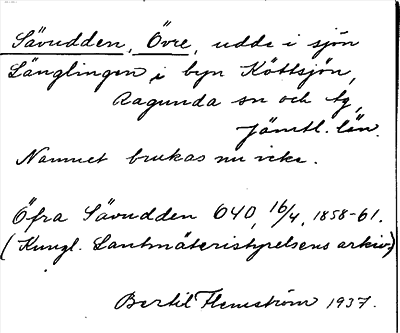 Sävudden, Övre, udde i sjön
Länglingen i byn Köttsjön,
Ragunda sn och tg,
Jämtl. län.
Namnet brukas nu icke.
Öfra Sävudden 640, 16/4, 1858-61.
(Kungl. Lantmäteristyrelsens arkiv.)
Bertil Flemström 1937.